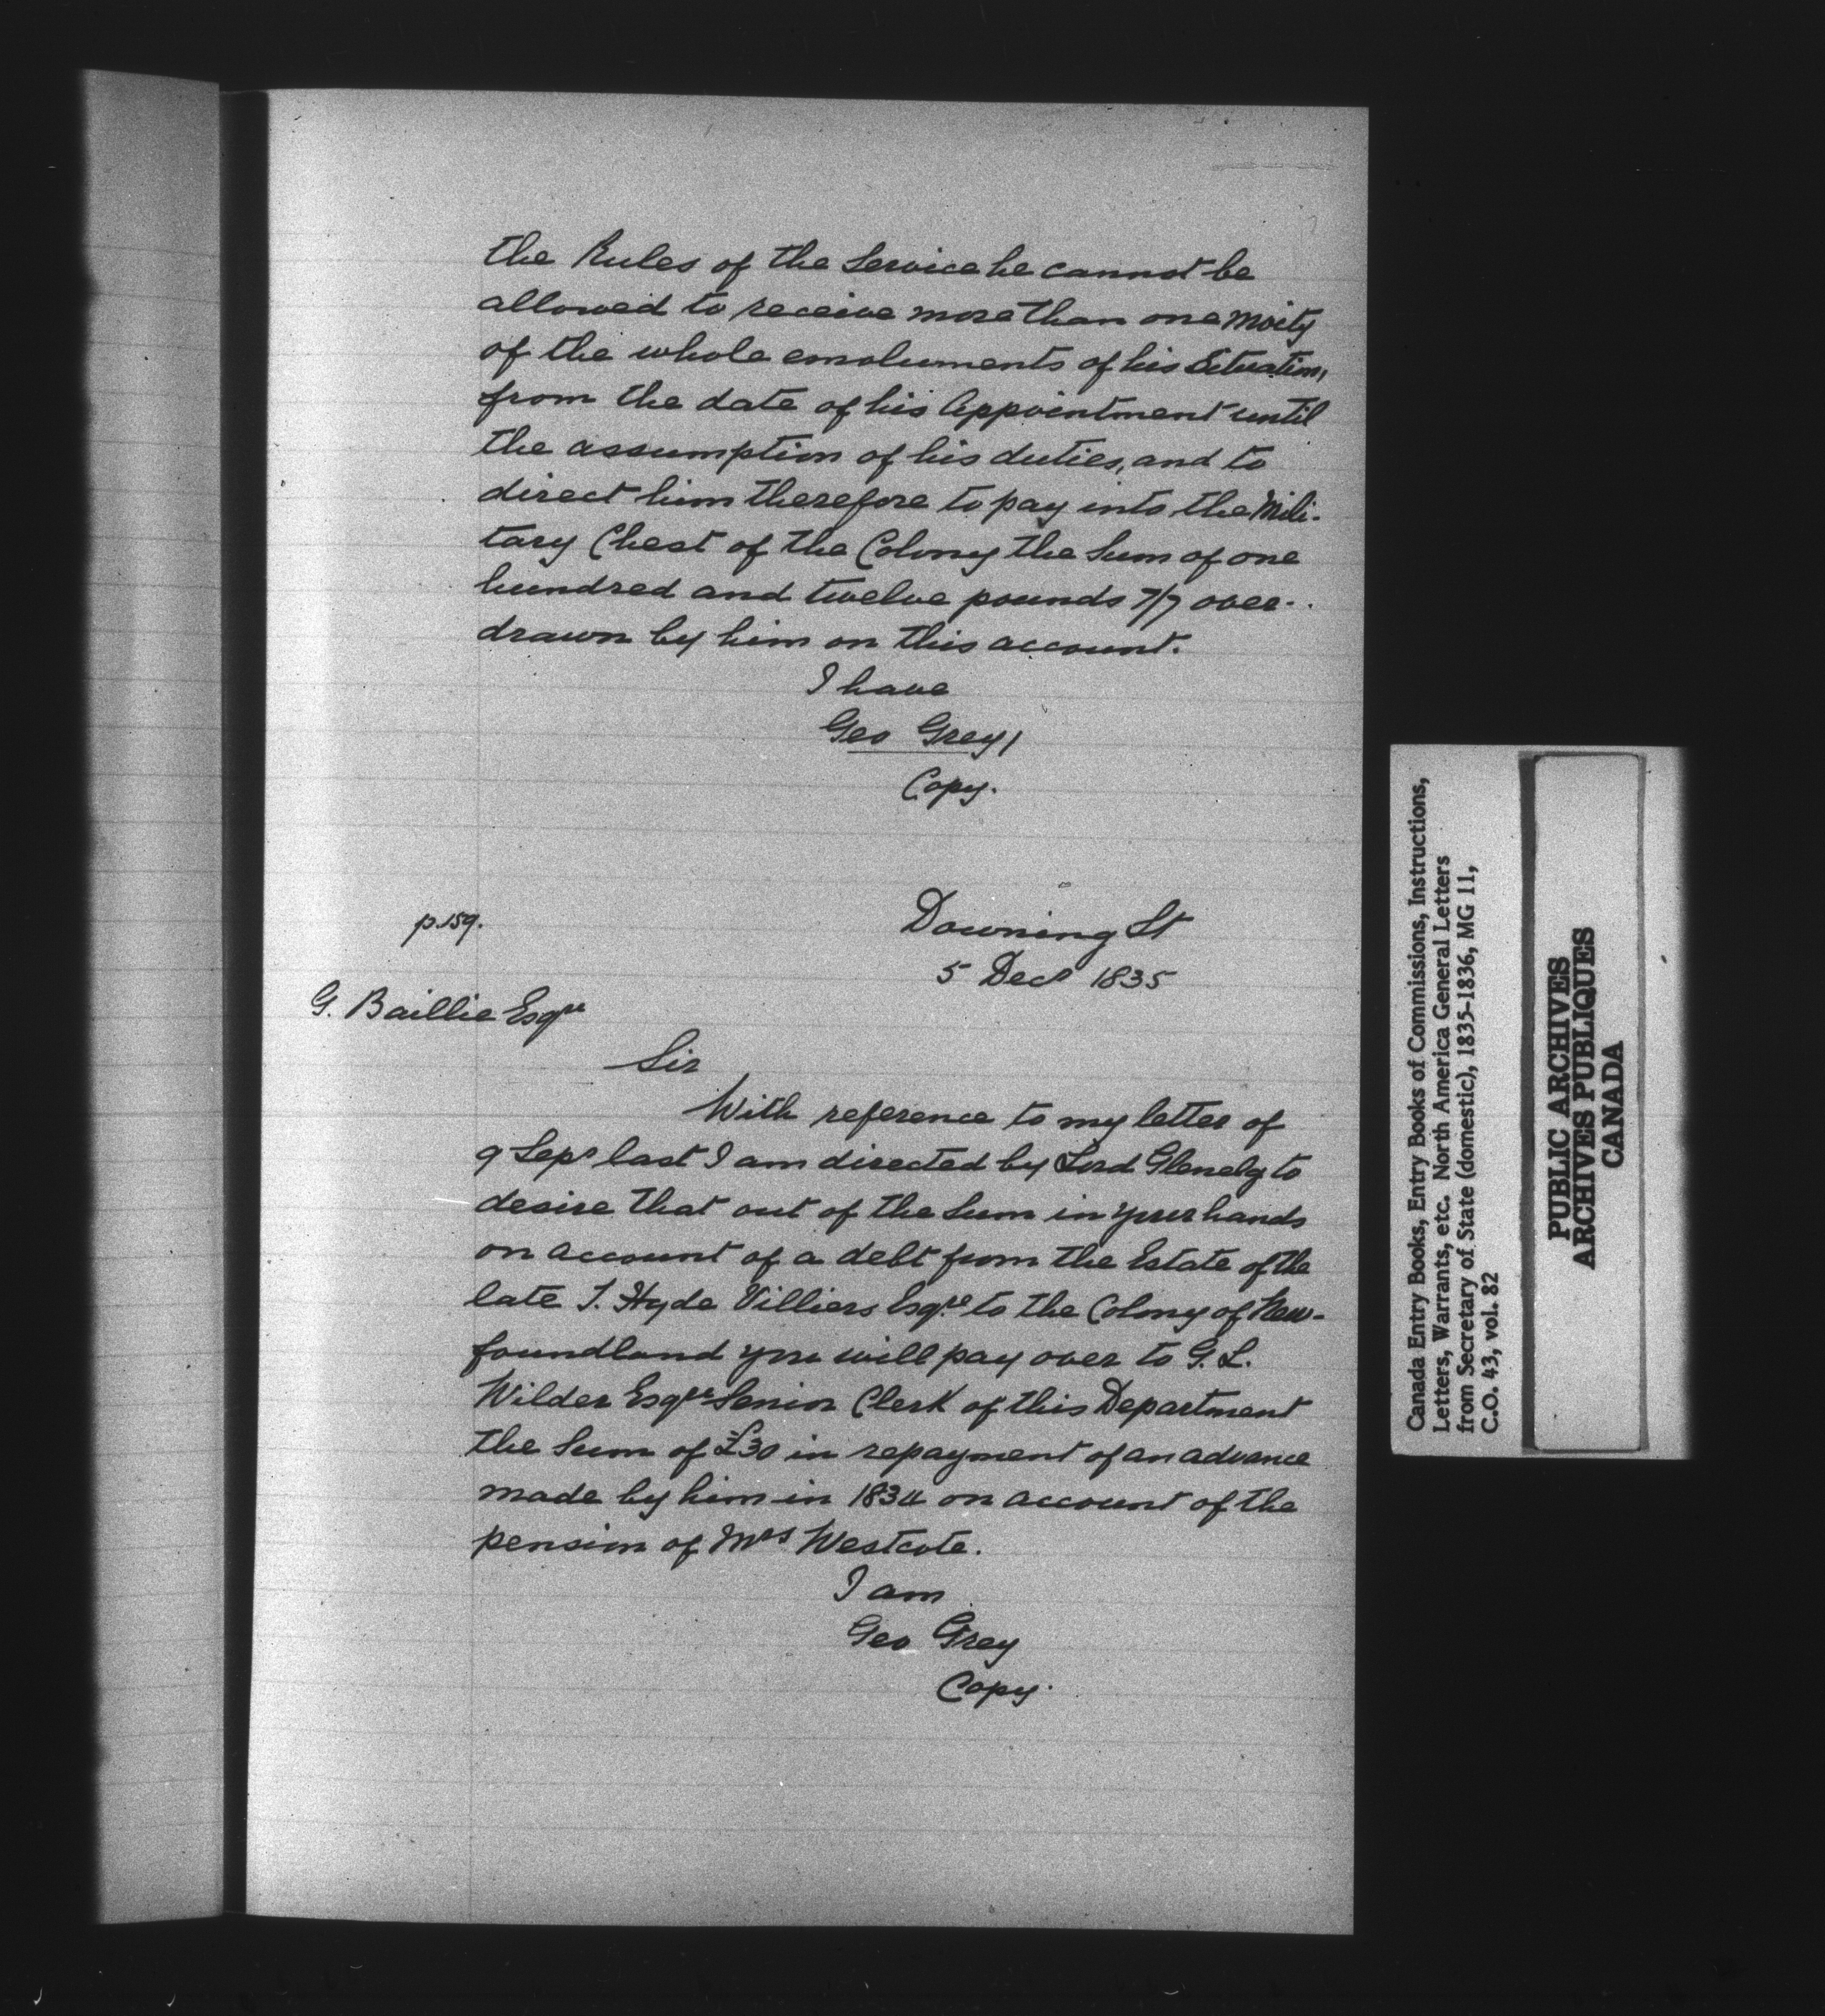 the Rules of the Service he cannot be
allowed to receive more than one moity
of the whole emoluments of his Situation,
from the date of his Appointment until
the assumption of his duties, and to
direct him therefore to pay into the Mili-
tary Chest of the Colony the Sum of one
hundred and twelve pounds 7/7 over-
drawn by him on this account.
I have
Geo Grey
Copy.
p.159.
Downing St
5 Decr 1835
G. Baillie Esqre
Sir
With reference to my letter of
9 Sepr last I am directed by Lord Glenelg to
desire that out of the Sum in your hands
on account of a debt from the Estate of the
late T. Hyde Villiers Esqre to the Colony of New-
foundland you will pay over to G. L.
Wilder Esqre Senior Clerk of this Department
the Sum of £30 in repayment of an advance
made by him in 1834 on account of the
pension of Mrs Westcote.
I am
Geo Grey
Copy.
Canada Entry Books, Entry Books of Commissions, Instructions,
Letters, Warrants, etc. North America General Letters
from Secretary of State (domestic), 1835-1836, MG 11,
C.O. 43, vol. 82
PUBLIC ARCHIVES
ARCHIVES PUBLIQUES
CANADA